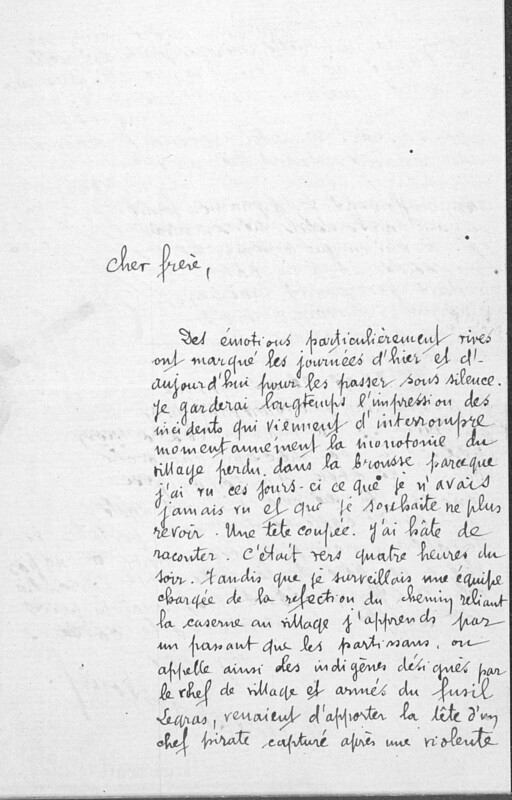 Cher frère,
Des émotions particulièrement vives
ont marqué les journées d'hier et d'-
aujourd'hui pour les passer sous silence.
Je garderai longtemps l'impression des
incidents qui viennent d'interrompre
momentannément la monotonie du
village perdu dans la brousse parceque
j'ai vu ces jours-ci ce que je n'avais
jamais vu et que je souhaite ne plus
revoir. Une tête coupée. J'ai hâte de
raconter. C'était vers quatre heures du
soir. Tandis que je surveillais une équipe
chargée de la refection du chemin reliant
la caserne au village j'apprends par
un passant que les partissans, on
appelle ainsi des indigènes désignés par
le chef de village et armés du fusil
Legras, venaient d'apporter la tête d'un
chef pirate capturé après une violente